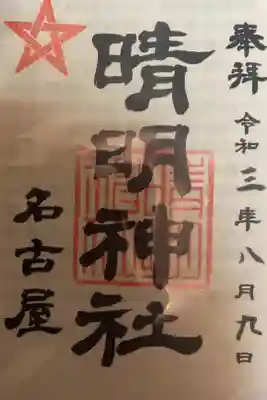 奉拝 令和三年八月九日
晴明神社
名古屋